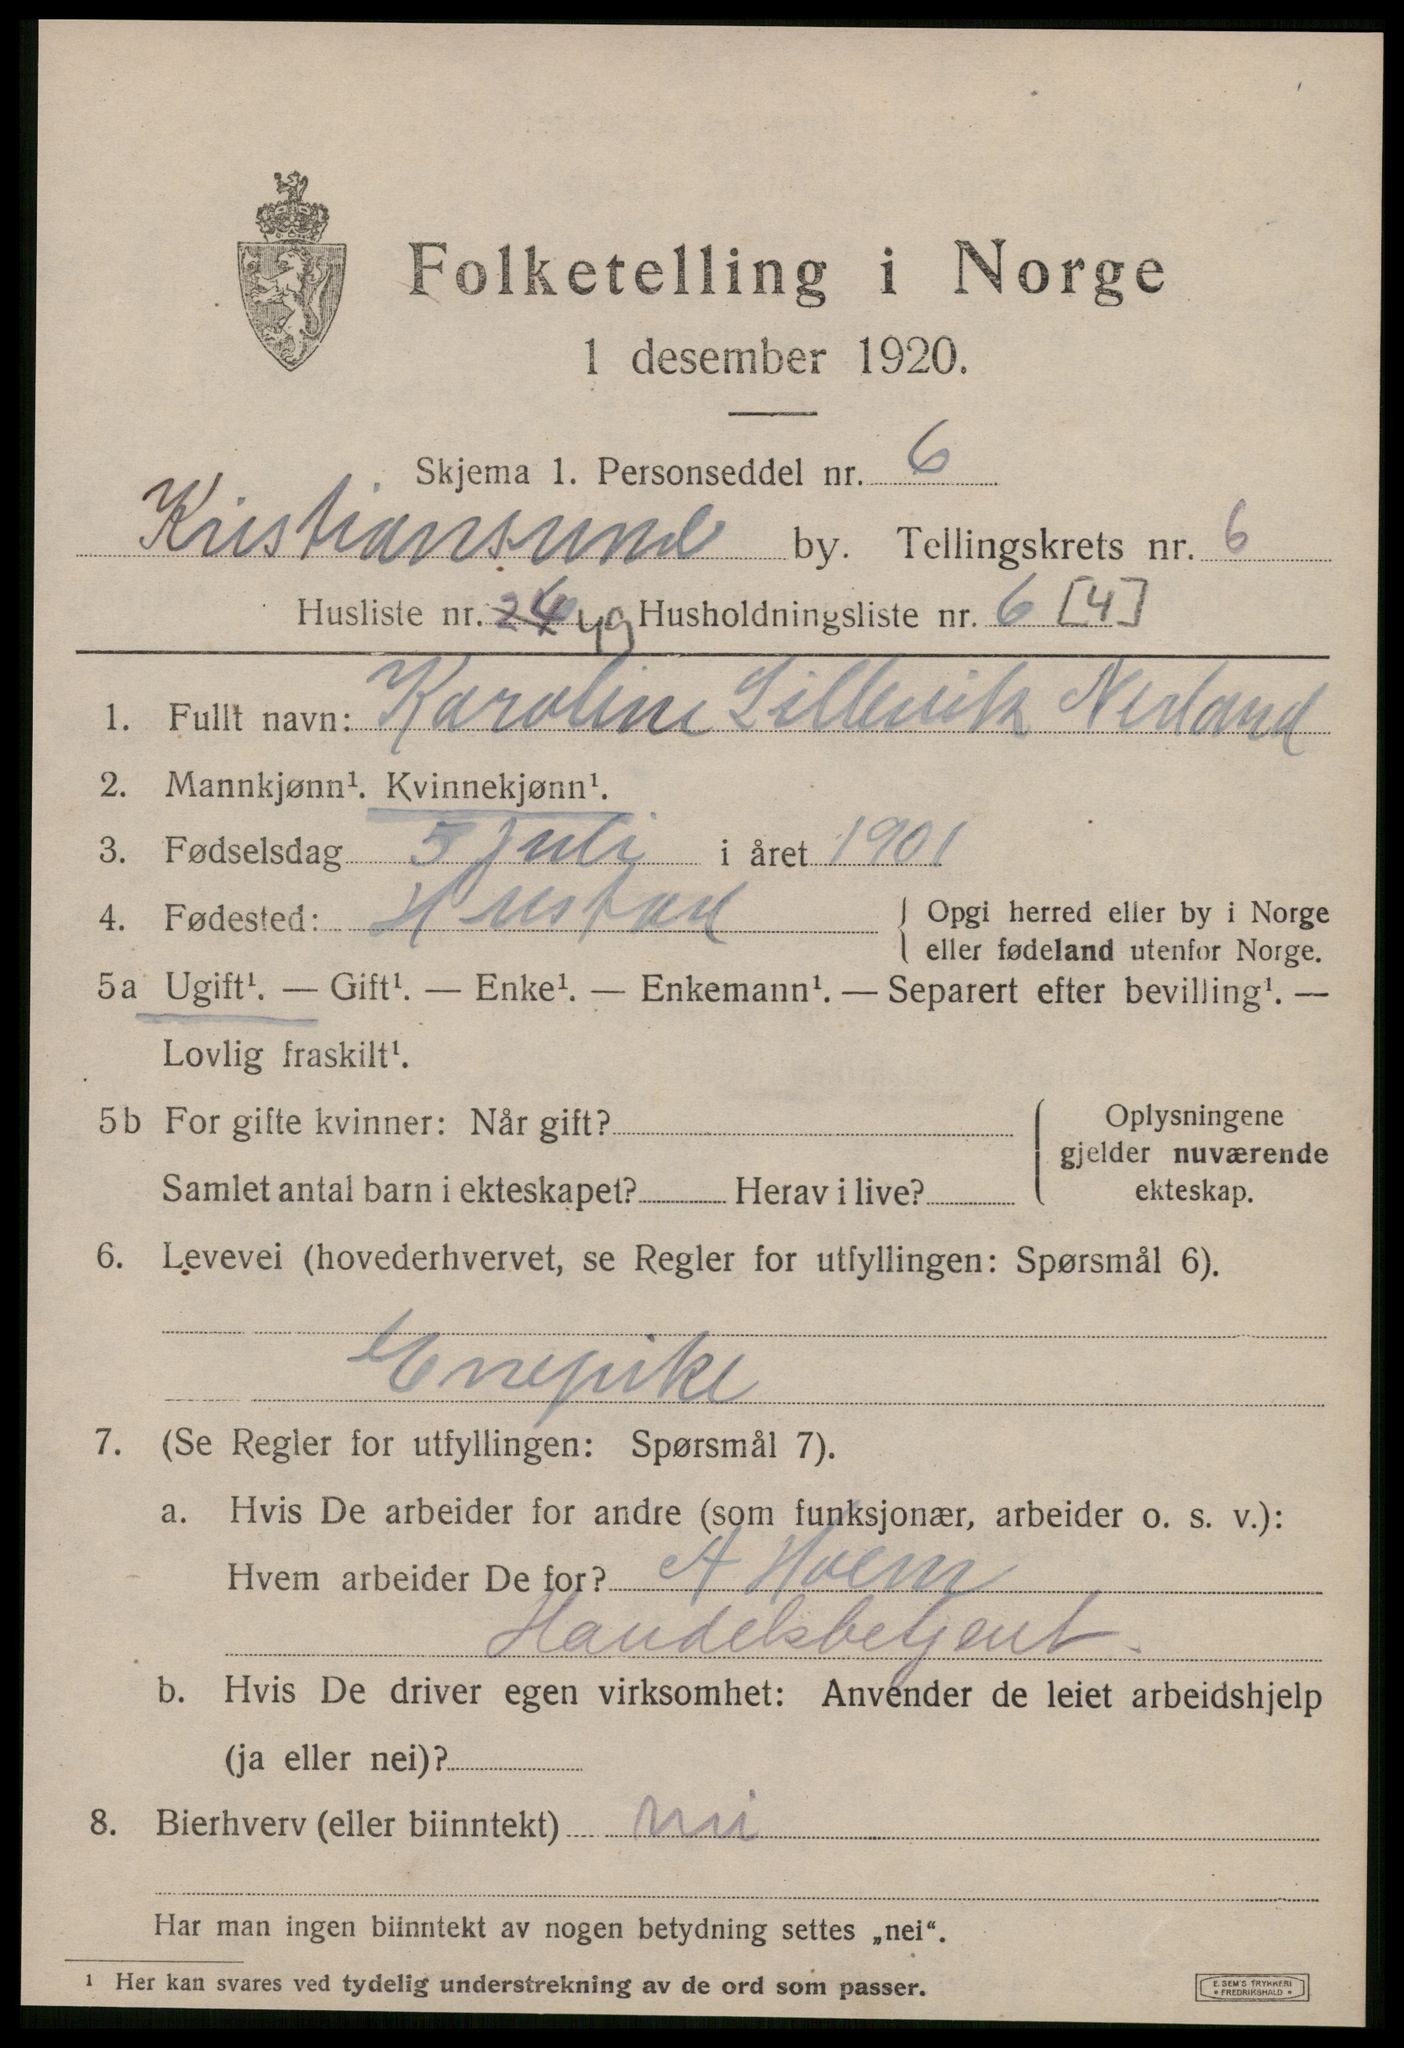 Folketelling i Norge
1 desember 1920.
Skjema 1. Personseddel nr. 6
Kristiansund by. Tellingskrets nr. 6
Husliste nr. 49 Husholdningsliste nr. 6 [4]
1. Fullt navn: Karoline Lillevik Nerland
2. Mannkjønn¹. Kvinnekjønn¹.
3. Fødselsdag 5 juli i året 1901
4. Fødested: Hustad { Opgi herred eller by i Norge
eller fødeland utenfor Norge.
5a Ugift¹. — Gift¹. — Enke¹. — Enkemann¹. — Separert efter bevilling¹. —
Lovlig fraskilt¹.
5b For gifte kvinner: Når gift?
Samlet antal barn i ekteskapet? Herav i live?
{ Oplysningene
gjelder nuværende
ekteskap.
6. Levevei (hovederhvervet, se Regler for utfyllingen: Spørsmål 6).
Enepike
7. (Se Regler for utfyllingen: Spørsmål 7).
a. Hvis De arbeider for andre (som funksjonær, arbeider o. s. v.):
Hvem arbeider De for? A Hoem
Handelsbetjent.
b. Hvis De driver egen virksomhet: Anvender de leiet arbeidshjelp
(ja eller nei)?
8. Bierhverv (eller biinntekt) nei
Har man ingen biinntekt av nogen betydning settes „nei“.
¹ Her kan svares ved tydelig understrekning av de ord som passer.
E. SEM'S TRYKKERI
* FREDRIKSHALD *